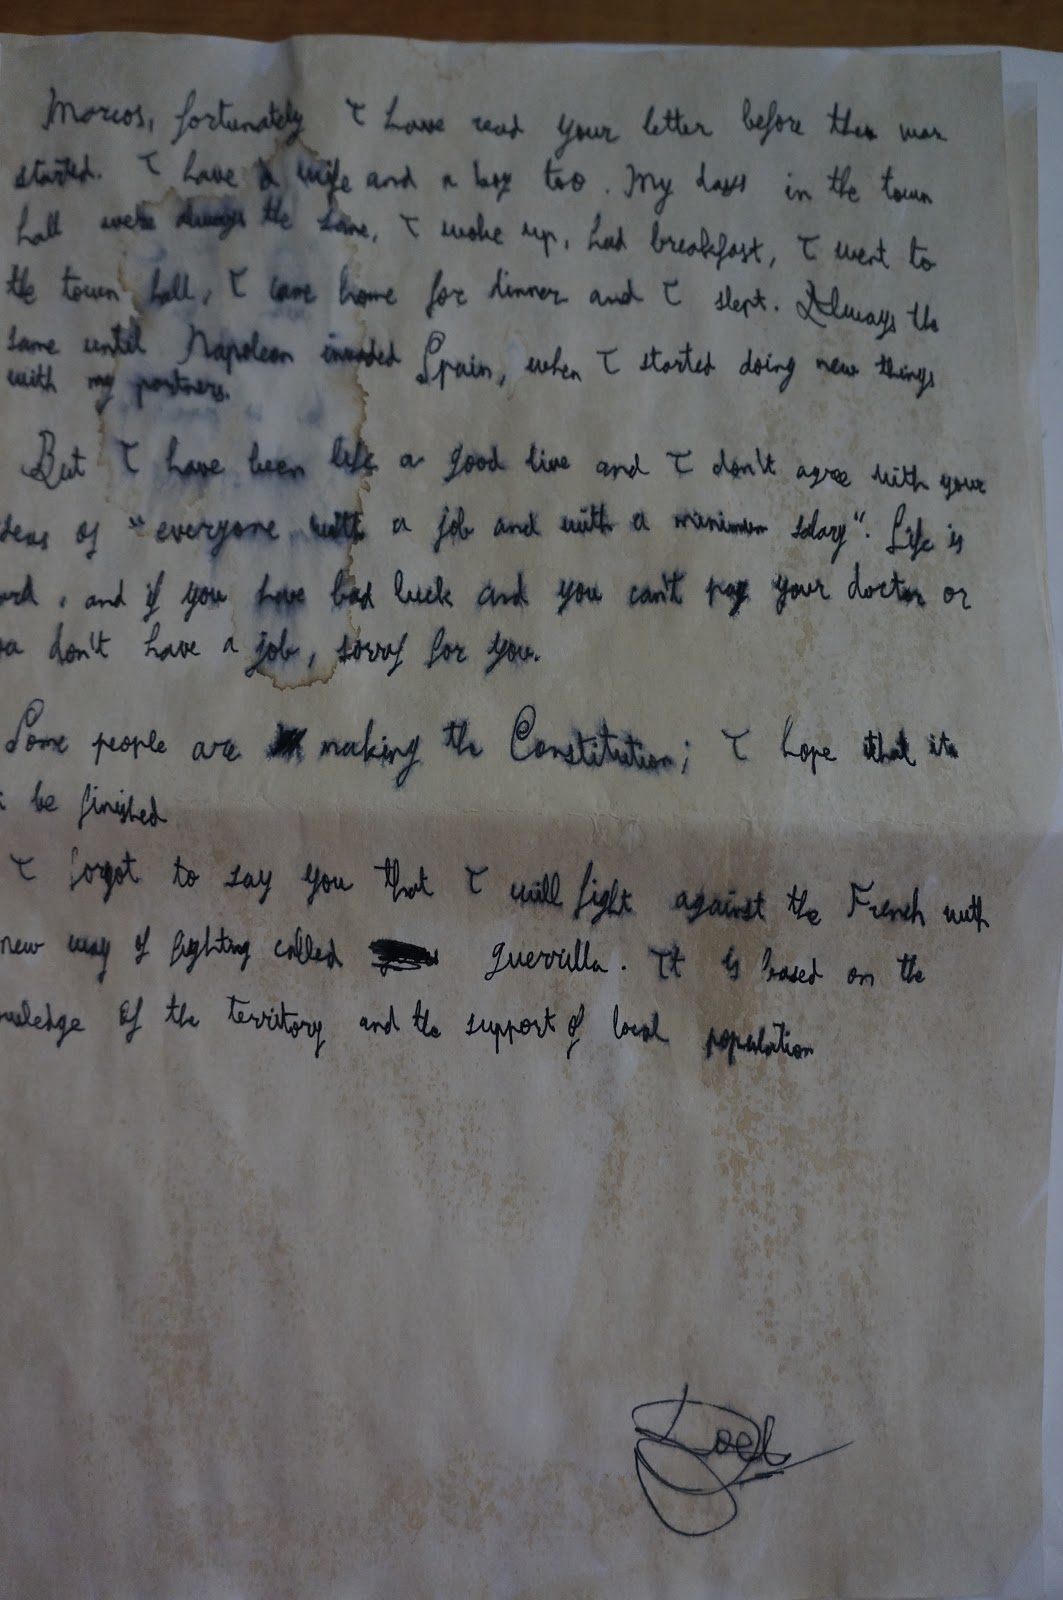 Marcos, fortunately I have read your letter before the war
started. I have a wife and a boy too. My days in the town
hall were always the same, I woke up, had breakfast, I went to
the town hall, I came home for dinner and I slept. Always the
same until Napoleon invaded Spain, when I started doing new things
with my partners.
But I have been life a good live and I don't agree with your
deas of "everyone with a job and with a minimum salary". Life is
ard, and if you have bad luck and you can't pay your doctor or
don't have a job, sorry for you.
Some people are making the Constitution; I hope that it
be finished
I forgot to say you that I will fight against the French with
new way of fighting called guerrilla. It is based on the
owledge of the territory and the support of local population
Joel